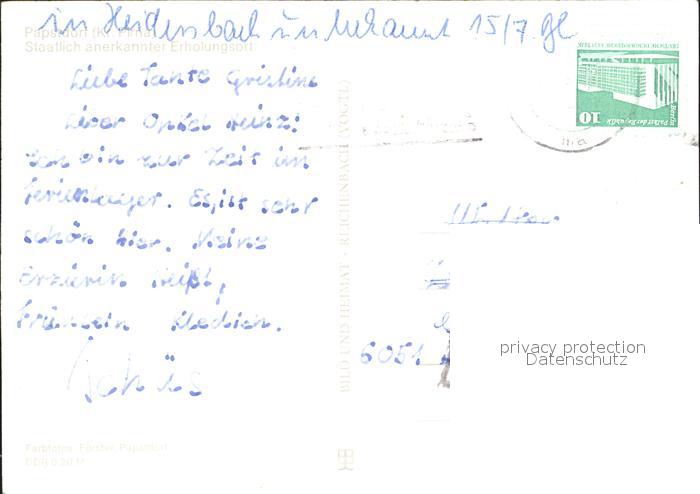 in Heidersbach unbekannt 15/7. Gl
Papstdorf (Kr. Pirna)
Staatlich anerkannter Erholungsort
Liebe Tante Gristine
Lieber Onkel Heinz!
Ich bin zur Zeit im
Ferienlager. Es ist sehr
schön hier. Meine
Erzierin heißt,
Fräulein Kledich.
BILD UND HEIMAT · REICHENBACH (VOGTL)
DEUTSCHE DEMOKRATISCHE REPUBLIK
10
Berlin
Palast der Republik
6051
privacy protection
Datenschutz
Farbfotos: Förster, Papstdorf
DDR 0,20 M